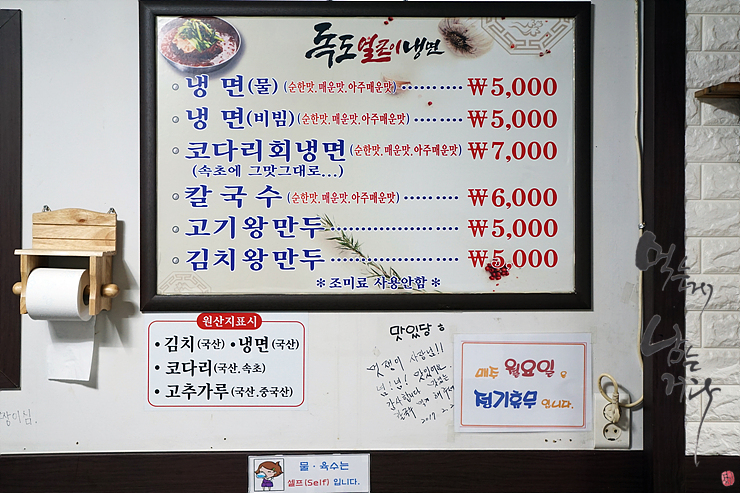 독도열끈이냉면
냉 면(물) (순한맛.매운맛.아주매운맛) ·········· ₩5,000
냉 면(비빔) (순한맛.매운맛.아주매운맛) ········ ₩5,000
코다리회냉면 (순한맛.매운맛.아주매운맛) ₩7,000
(속초에 그맛그대로...)
칼 국 수 (순한맛.매운맛.아주매운맛) ········· ₩6,000
고기왕만두 ······················ ₩5,000
김치왕만두 ······················ ₩5,000
* 조미료 사용안함 *
원산지표시
• 김치(국산) • 냉면(국산)
• 코다리(국산,속초)
• 고추가루(국산,중국산)
맛있당
멋쟁이 사장님!!
감사합니다
2017. 2. 2
매주 월요일은
정기휴무입니다.
물 · 육수는
셀프(Self) 입니다.
먹는게
남는
거라